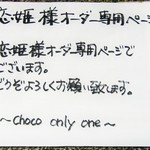 恋姫様オーダー専用ページ
恋姫様オーダー専用ページで
ございます。
どうぞよろしくお願い致します。
~choco only one~